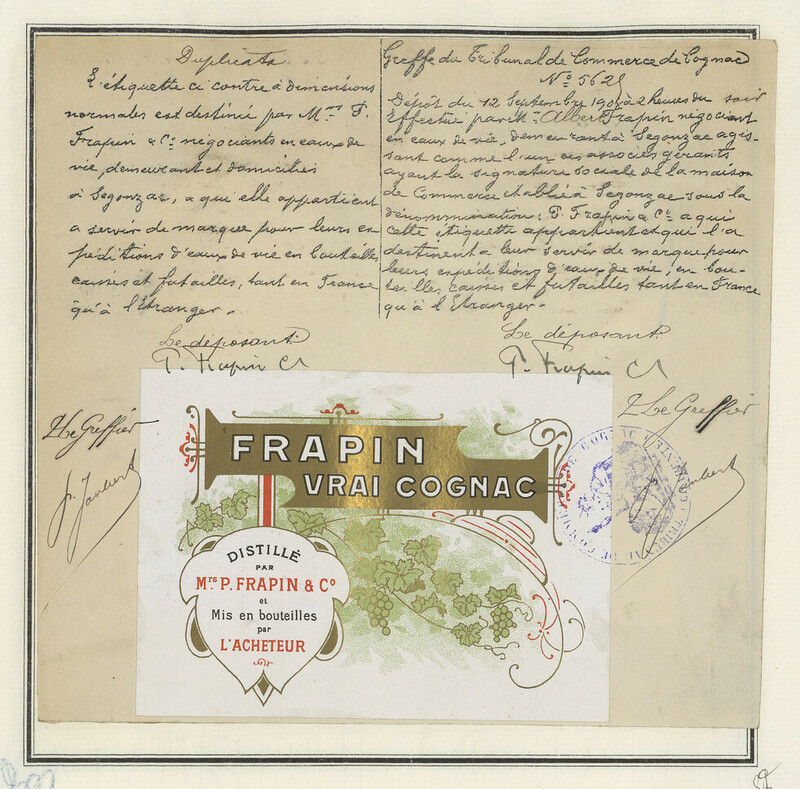 Duplicata
L'étiquette ci contre à dimensions
normales est destinée par Mrs P.
Frapin & Cie négociants en eaux de
vie, demeurant et domiciliés
à Segonzac, a qui elle appartient
a servir de marque pour leurs ex
péditions d'eaux de vie en bouteilles,
caisses et futailles, tant en France
qu'à l'Etranger.
Le déposant:
P. Frapin Cie
Greffe du Tribunal de Commerce de Cognac
No 562
Dépôt du 12 Septembre à 2 heures du soir
Effectué par Mr Albert Frapin négociant
en eaux de vie, demeurant à Segonzac agis-
sant comme l'un des associés gérants
ayant la signature sociale de la maison
de Commerce etablie à Segonzac sous la
dénommination: P. Frapin & Cie a qui
cette étiquette appartient et qui l'a
destinent a leur servir de marque pour
leurs expéditions d'eaux de vie, en bou-
teilles caisses et futailles tant en France
qu'à l'Etranger.
Le déposant:
P. Frapin Cie
Le Greffier
Le Greffier
FRAPIN
VRAI COGNAC
DISTILLÉ
PAR
Mrs P. FRAPIN & Co
et
Mis en bouteilles
par
L'ACHETEUR
TRIBUNAL DE COMMERCE DE COGNAC